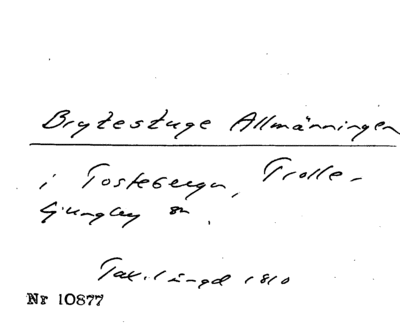 Brytestuge Allmänningen
i Tosteberga, Trolle-
Ljungby sn.
Tax.längd 1810
Nr 10877